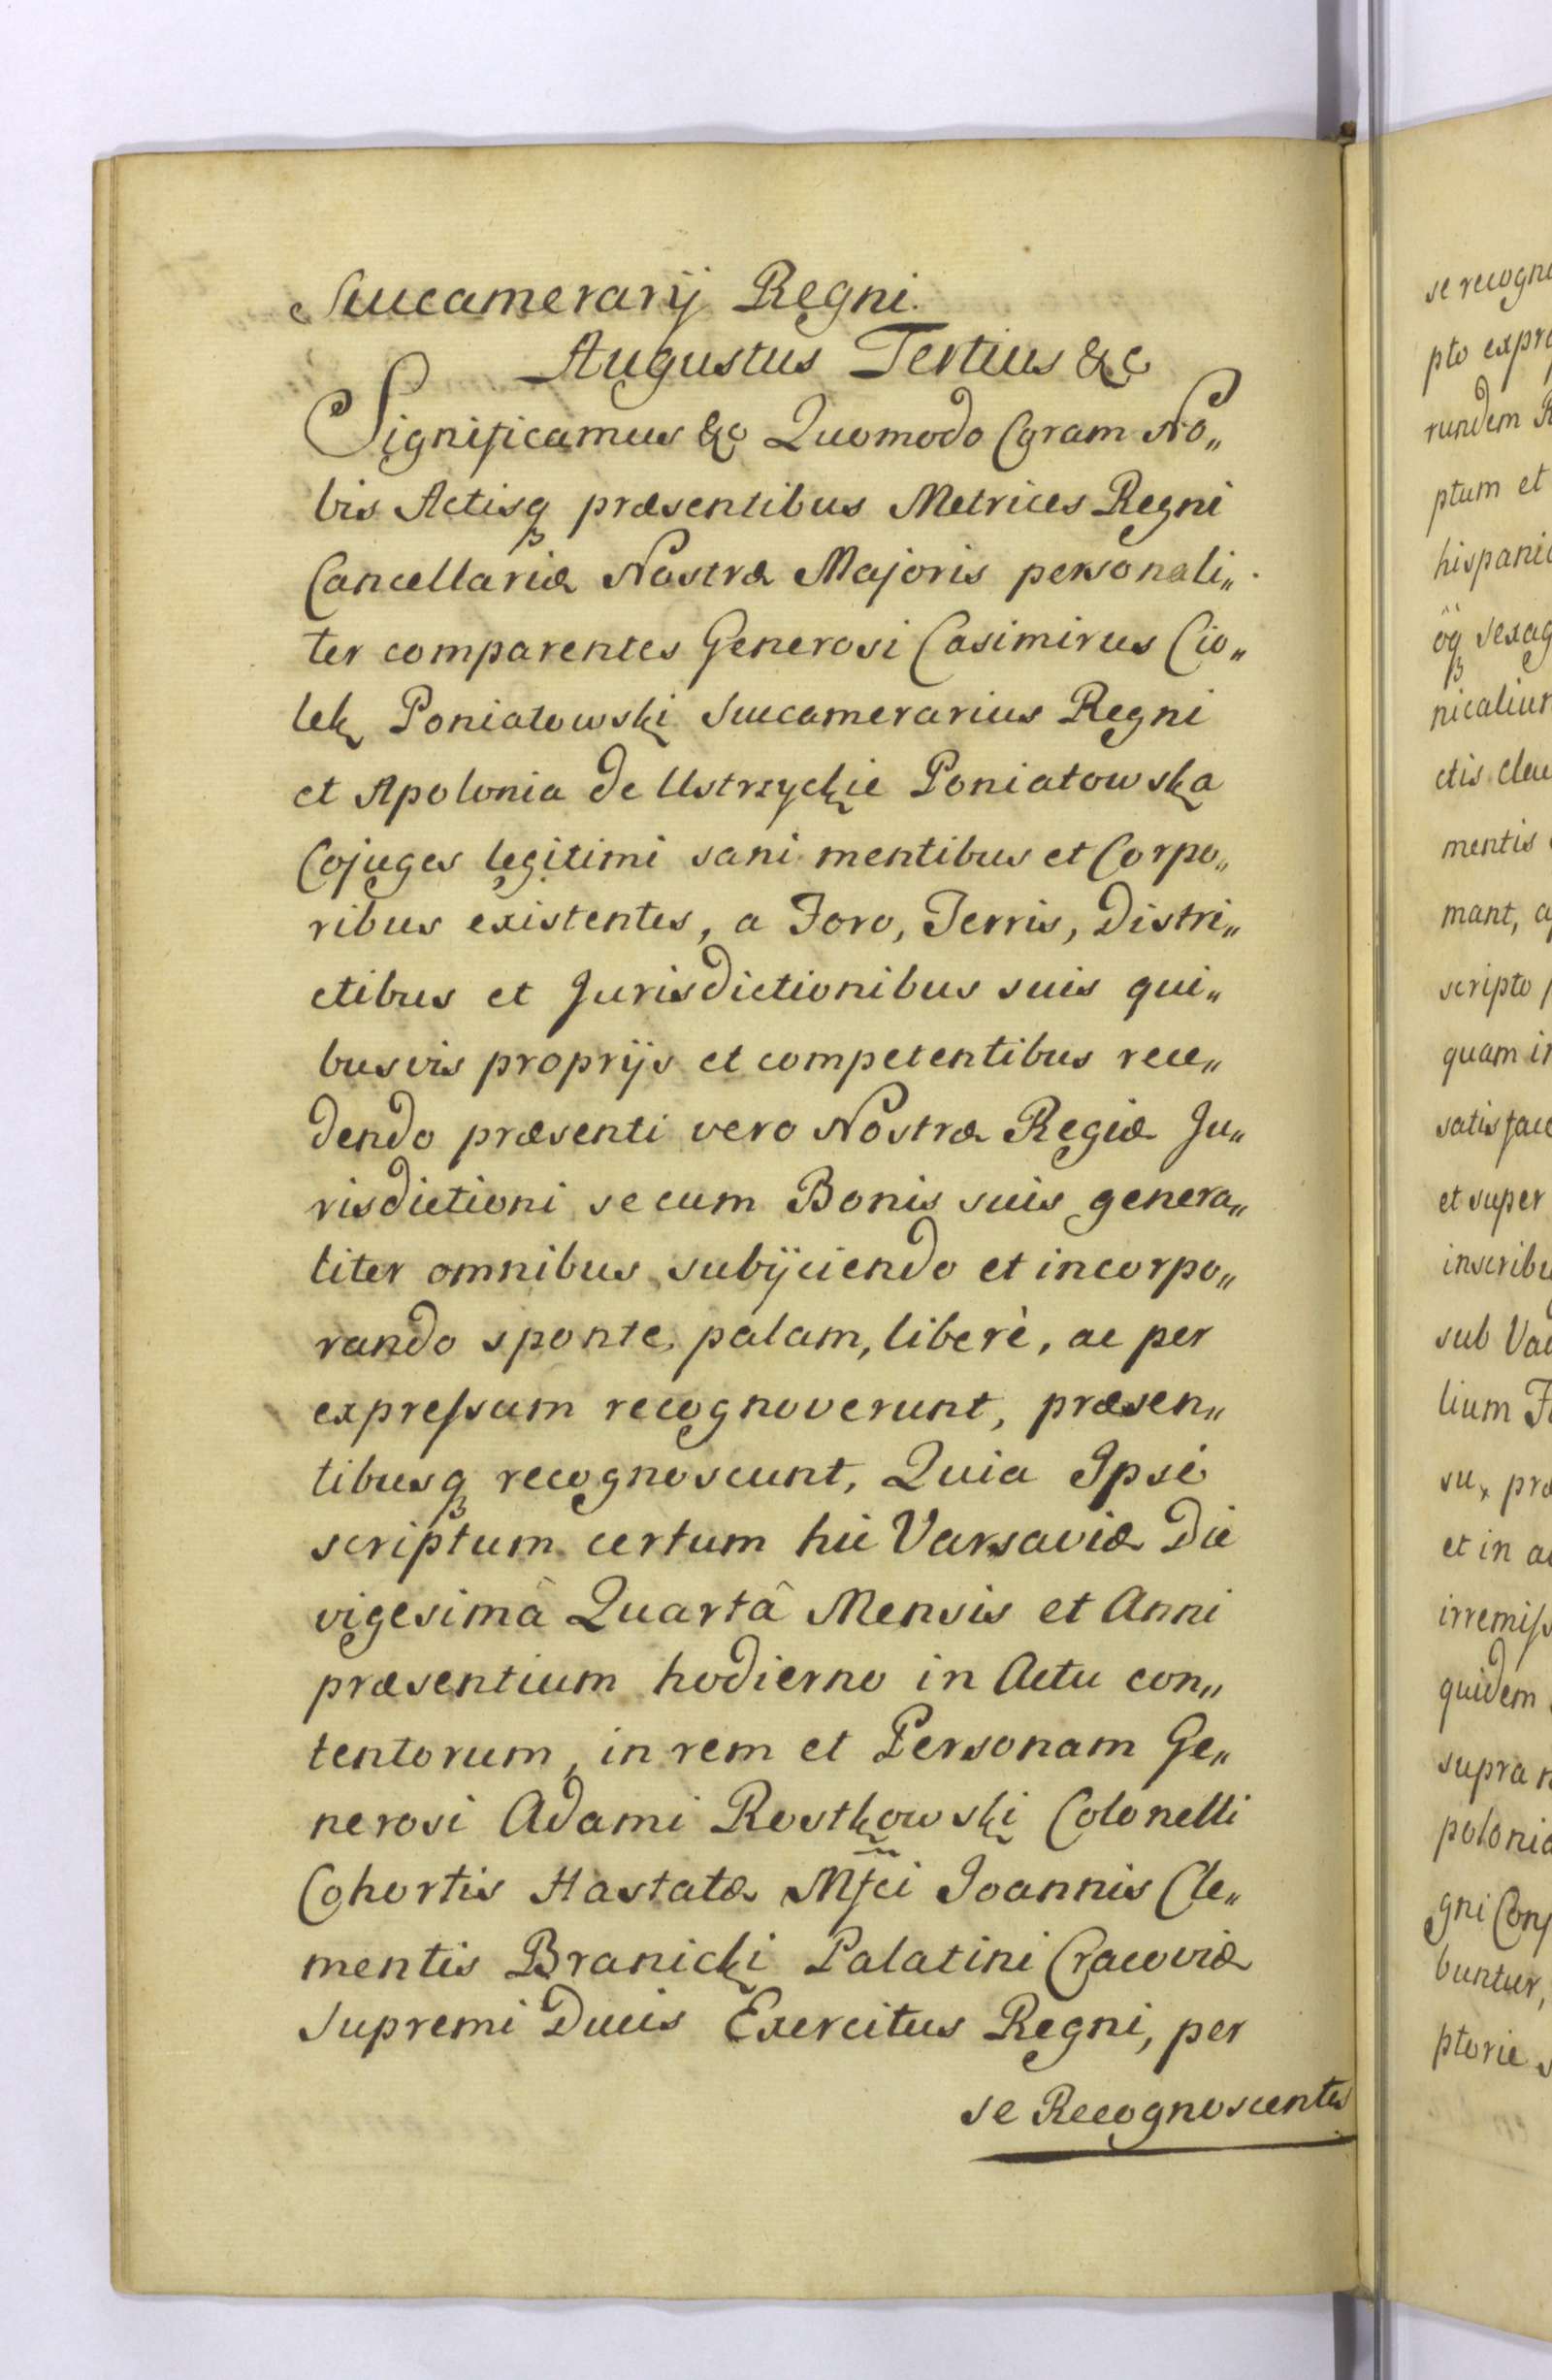 Succamerarij Regni.
Augustus Tertius &c
Significamus &c Quomodo Cgram No„
bis Actisq præsentibus Metrices Regni
Cancellariæ Nostræ Majoris personali„
ter comparentes Generosi Casimirus Cio„
lek Poniatowski Succamerarius Regni
et Apolonia de Ustrzyckie Poniatowska
Cojuges legitimi sani mentibus et Corpo„
ribus existentes, a Foro, Terris, Distri„
ctibus et Jurisdictionibus suis qui„
busvis proprijs et competentibus rece„
dendo præsenti vero Nostræ Regiæ Ju„
risdictioni se cum Bonis suis genera„
liter omnibus subijciendo et incorpo„
rando sponte, palam, liberè, ac per
expressum recognoverunt, præsen„
tibusq recognoscunt, Quia Ipsi
scriptum certum hic Varsaviæ Die
vigesimâ Quartâ Mensis et Anni
præsentium hodierno in Actu con„
tentorum, in rem et Personam Ge„
nerosi Adami Rostkowski Colonelli
Cohortis Hastatæ Mfci Joannis Cle„
mentis Branicki Palatini Cracoviæ
Supremi Ducis Exercitus Regni, per
se Recognoscentes
se recogno
pto expro
rundem R
ptum et
hispanic
oq sexag
nicaliun
ctis clau
mentis
mant, a
scripto
quam in
satisfac
et super
inscribu
sub Vad
lium F
su, præ
et in a
irremiss
quidem
supra n
polonia
gni Cons
buntur,
ptorie s